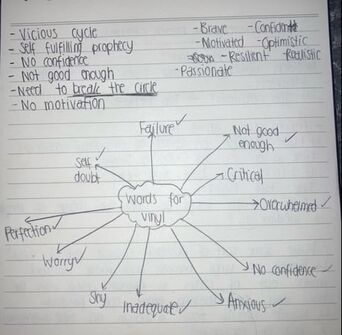 - Vicious cycle
- Self fulfilling prophecy
- No confidence
- Not good enough
- Need to break the circle
- No motivation
- Brave - Confident
- Motivated - Optimistic
- Resilient - Realistic
- Passionate
Failure ✓
Not good
enough ✓
Self
doubt ✓
Critical
Words for
vinyl
Overwhelmed ✓
Perfection ✓
Worry ✓
No confidence ✓
Shy
Inadequate ✓
Anxious ✓